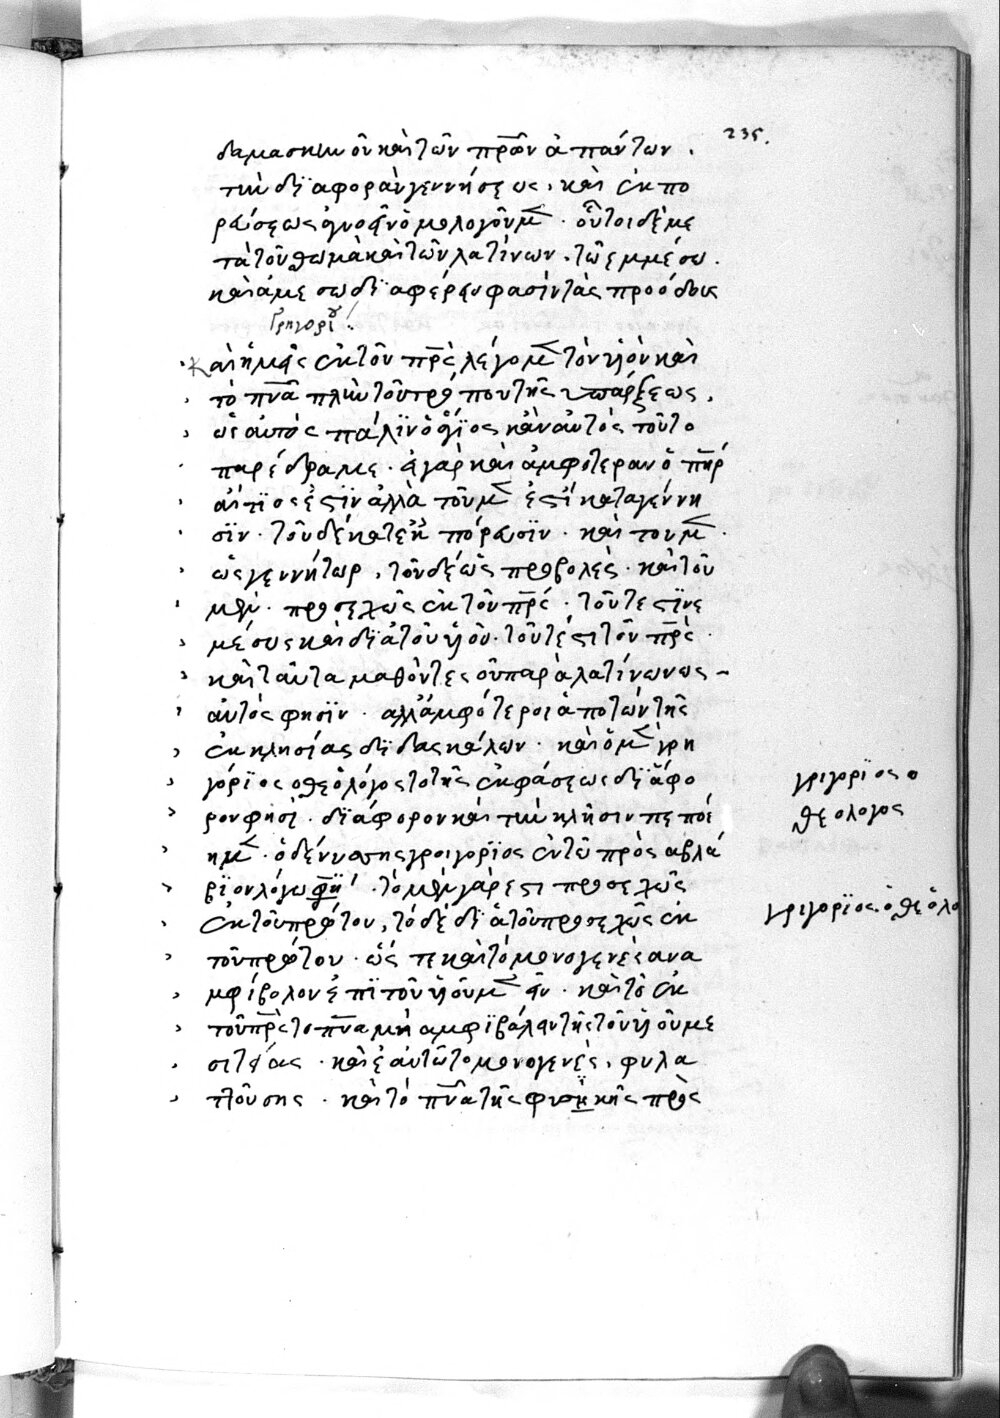 235.
δαμασκηνὸν καὶ τῶν πρ̅ων ἁπάντων .
τὴν διαφορὰν γεννήσεως, καὶ ἐκπο
ρεύσεως ἀγνοεῖν ὁμολογοῦμ . οὗτοι δὲ με
τὰ τοῦ θωμᾶ καὶ τῶν λατίνων . τῶ ἐμμέσω .
καὶ ἀμέσω διαφέρειν φασὶν τὰς προόδους
Γρηγορίου
καὶ ἡμεῖς ἐκ τοῦ πρ̅ς λέγομ τὸν υἱὸν καὶ
τὸ πν̅α πλὴν τοῦ τρόπου τῆς ὑπάρξεως .
ὡς αὐτὸς πάλιν ὁ θεῖος κἀν αὐτὸς τοῦτο
παρέδραμε . εἰ γὰρ καὶ ἀμφοτέραν ὁ π̅ηρ
αἴτιος ἐστὶν ἀλλὰ τοῦ μ ἐστὶ κατα γέννη
σιν . τοῦ δὲ κατ ἐκπόρευσιν . καὶ τοῦ μ .
ὡς γεννήτωρ , τοῦ δὲ ὡς προβολεὺς . καὶ τοῦ
μὲν . προσεχῶς ἐκ τοῦ πρ̅ς . τοῦτ ἔστιν ἐ
μέσως καὶ διὰ τοῦ υἱοῦ . τοῦτ ἔστι τοῦ πρ̅ς .
καὶ ταῦτα μαθόντες οὐ παρὰ λατίνων ὡς –
αὐτός φησιν . ἀλλ ἀμφότεροι ἀπὸ τῶν τῆς
ἐκκλησίας διδασκάλων . καὶ ὁ μ γρη
γόριος ὁ θεολόγος τὸ τῆς ἐκφάσεως διάφο
ρον φησὶ . διάφορον καὶ τὴν κλῆσιν πεποί
ημ . ὁ δὲ νύσσης γρηγόριος ἐν τῶ πρὸς ἀβλά
βιον λόγω φη . τὸ μὲν γάρ ἐστι προσεχῶς
ἐκ τοῦ πρώτου , τὸ δὲ διὰ τοῦ προσεχῶς ἐκ
τοῦ πρώτου . ὥς τε καὶ τὸ μονογενὲς ἀνα
μφίβολον ἐπὶ τοῦ υἱοῦ μ εῖν . καὶ τὸ ἐκ
τοῦ πρ̅ς τὸ πν̅α μὴ ἀμφιβάλειν τῆς τοῦ υἱοῦ με
σιτείας . καὶ ἐ αυτῶ τὸ μονογενὲς . φυλα
ττούσης . καὶ τὸ πν̅α τῆς φυσικῆς πρὸς
γριγορϊος ο
θεολογος
γριγορϊος ὁ θεολο